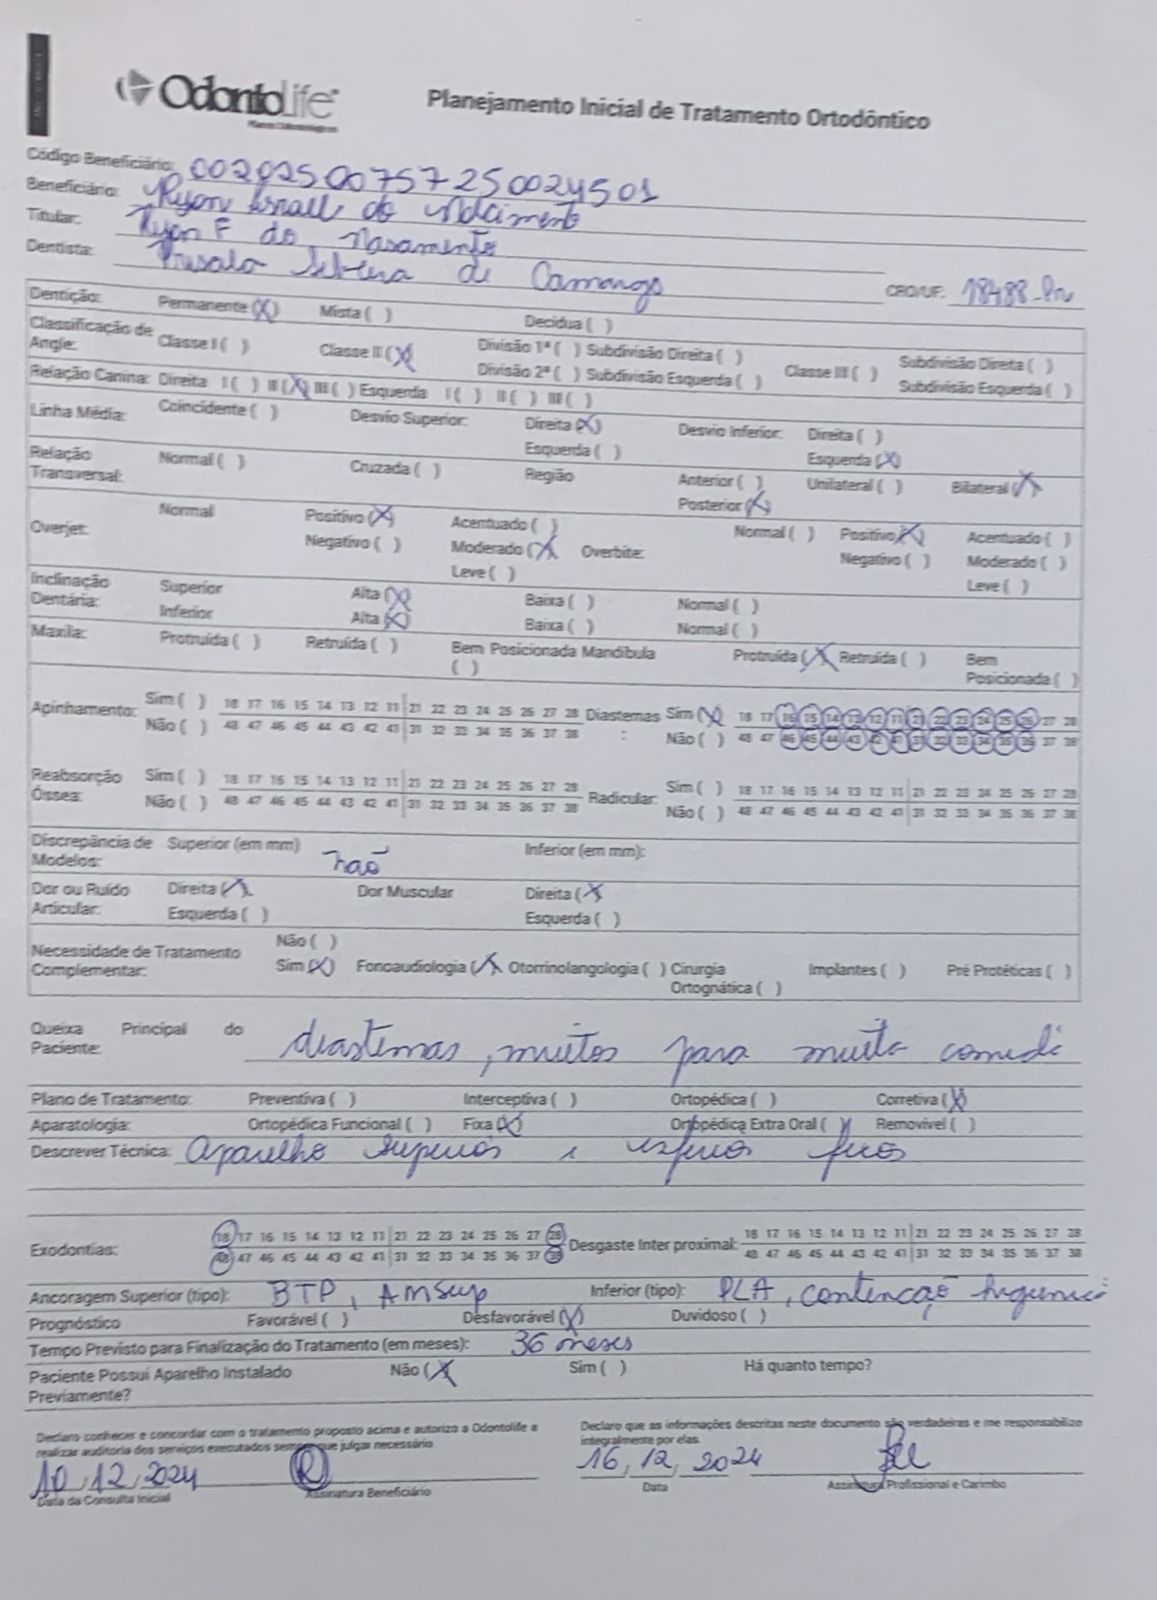 OdontoLife
Planos Odontológicos
Planejamento Inicial de Tratamento Ortodôntico
Código Beneficiário: 00202500757250024501
Beneficiário: Ryan do
Titular: Ryan F do Nascimento
Dentista: de Camargo CRO/UF: 18488
Dentição: Permanente (X) Mista ( ) Decídua ( )
Classificação de Angle: Classe I ( ) Classe II (X) Divisão 1ª ( ) Subdivisão Direita ( ) Classe III ( ) Subdivisão Direita ( )
Divisão 2ª ( ) Subdivisão Esquerda ( ) Subdivisão Esquerda ( )
Relação Canina: Direita I ( ) II (X) III ( ) Esquerda I ( ) II ( ) III ( )
Linha Média: Coincidente ( ) Desvio Superior: Direita (X) Desvio Inferior: Direita ( )
Esquerda ( ) Esquerda (X)
Relação Transversal: Normal ( ) Cruzada ( ) Região Anterior ( ) Unilateral ( ) Bilateral (X)
Posterior (X)
Overjet: Normal Positivo (X) Acentuado ( ) Overbite: Normal ( ) Positivo (X) Acentuado ( )
Negativo ( ) Moderado (X) Negativo ( ) Moderado ( )
Leve ( ) Leve ( )
Inclinação Dentária: Superior Alta (X) Baixa ( ) Normal ( )
Inferior Alta (X) Baixa ( ) Normal ( )
Maxila: Protruída ( ) Retruída ( ) Bem Posicionada ( ) Mandíbula Protruída (X) Retruída ( ) Bem Posicionada ( )
Apinhamento: Sim ( ) 18 17 16 15 14 13 12 11 21 22 23 24 25 26 27 28 Diastemas: Sim (X) 18 17 16 15 14 13 12 11 21 22 23 24 25 26 27 28
Não ( ) 48 47 46 45 44 43 42 41 31 32 33 34 35 36 37 38 Não ( ) 48 47 46 45 44 43 42 41 31 32 33 34 35 36 37 38
Reabsorção Óssea: Sim ( ) 18 17 16 15 14 13 12 11 21 22 23 24 25 26 27 28 Radicular: Sim ( ) 18 17 16 15 14 13 12 11 21 22 23 24 25 26 27 28
Não ( ) 48 47 46 45 44 43 42 41 31 32 33 34 35 36 37 38 Não ( ) 48 47 46 45 44 43 42 41 31 32 33 34 35 36 37 38
Discrepância de Modelos: Superior (em mm) não Inferior (em mm):
Dor ou Ruído Articular: Direita (X) Dor Muscular Direita (X)
Esquerda ( ) Esquerda ( )
Necessidade de Tratamento Complementar: Não ( )
Sim (X) Fonoaudiologia (X) Otorrinolangologia ( ) Cirurgia Ortognática ( ) Implantes ( ) Pré Protéticas ( )
Queixa Principal do Paciente: diastemas, muitos para muita
Plano de Tratamento: Preventiva ( ) Interceptiva ( ) Ortopédica ( ) Corretiva (X)
Aparatologia: Ortopédica Funcional ( ) Fixa (X) Ortopédica Extra Oral ( ) Removível ( )
Descrever Técnica: Aparelho superior
Exodontias: 18 17 16 15 14 13 12 11 21 22 23 24 25 26 27 28 Desgaste Inter proximal: 18 17 16 15 14 13 12 11 21 22 23 24 25 26 27 28
48 47 46 45 44 43 42 41 31 32 33 34 35 36 37 38 48 47 46 45 44 43 42 41 31 32 33 34 35 36 37 38
Ancoragem Superior (tipo): BTP, Inferior (tipo): PLA, contenção
Prognóstico Favorável ( ) Desfavorável (X) Duvidoso ( )
Tempo Previsto para Finalização do Tratamento (em meses): 36 meses
Paciente Possui Aparelho Instalado Previamente? Não (X) Sim ( ) Há quanto tempo?
Declaro conhecer e concordar com o tratamento proposto acima e autorizo a Odontolife a realizar auditoria dos serviços executados sempre que julgar necessário
Declaro que as informações descritas neste documento são verdadeiras e me responsabilizo integralmente por elas.
10, 12, 2024 16, 12, 2024
Data da Consulta Inicial Assinatura Beneficiário Data Assinatura Profissional e Carimbo